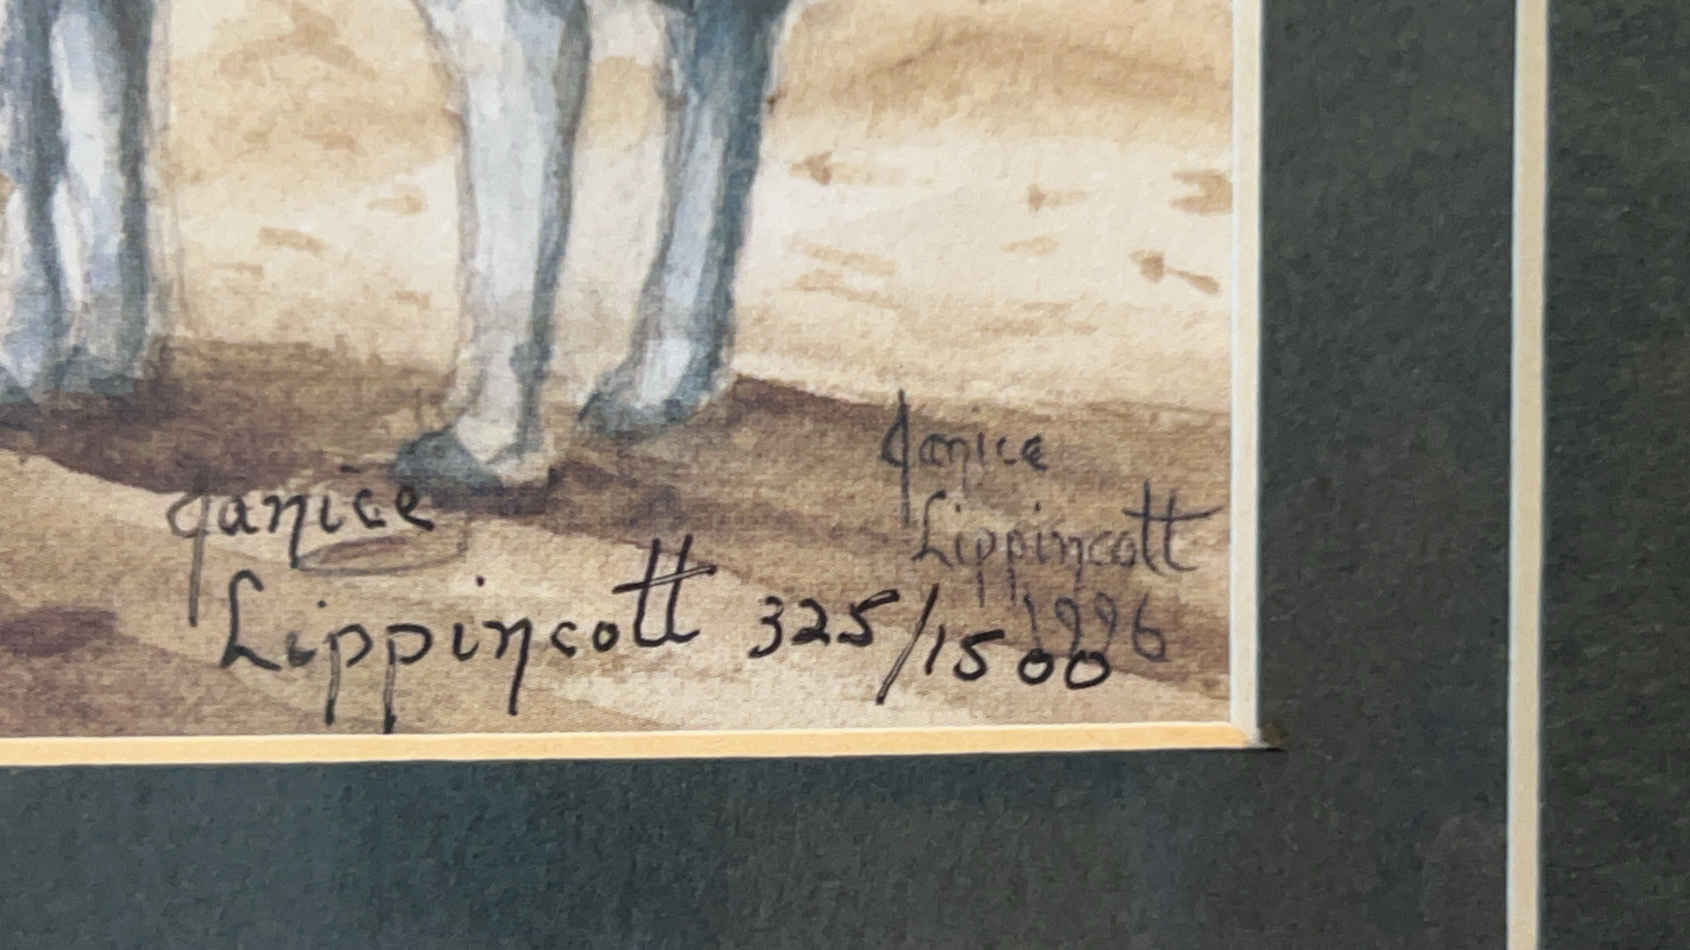 Janice
Lippincott 325/1500
Janice
Lippincott
1996